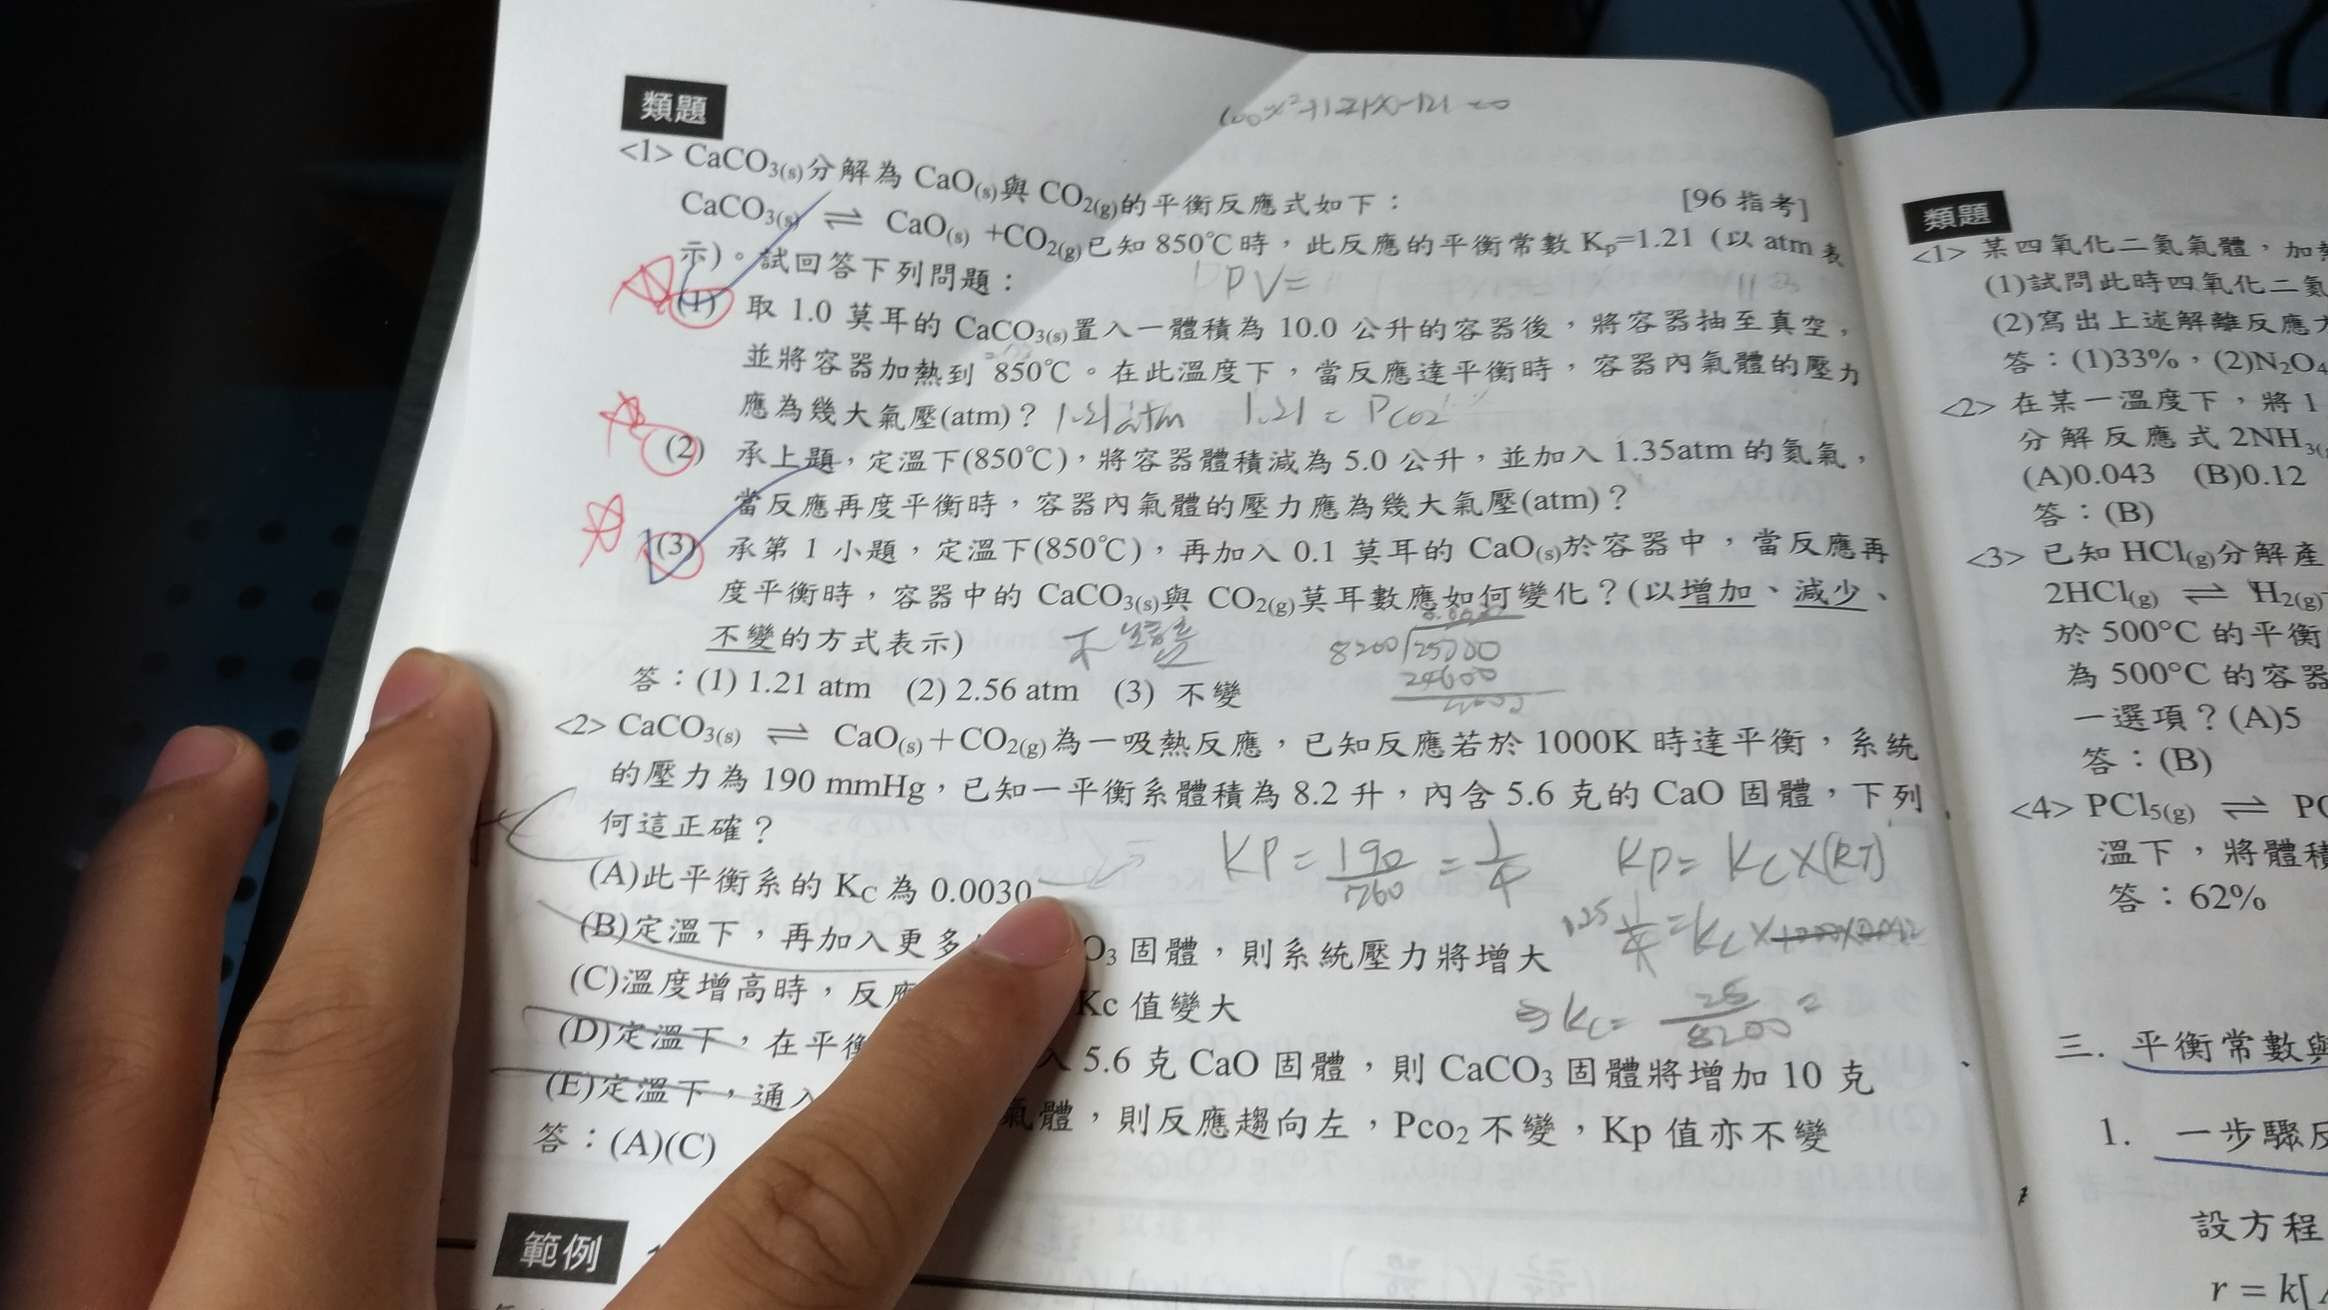 類題
100x²+121x-121=0
<1> CaCO3(s)分解為 CaO(s)與 CO2(g)的平衡反應式如下： [96 指考]
CaCO3(s) ⇌ CaO(s) +CO2(g)已知 850℃時，此反應的平衡常數 Kp=1.21（以 atm 表
示)。試回答下列問題：
PV=
(1) 取 1.0 莫耳的 CaCO3(s)置入一體積為 10.0 公升的容器後，將容器抽至真空，
並將容器加熱到 850℃。在此溫度下，當反應達平衡時，容器內氣體的壓力
應為幾大氣壓(atm)？ 1.21atm 1.21 = PCO2
(2) 承上題，定溫下(850℃)，將容器體積減為 5.0 公升，並加入 1.35atm 的氦氣，
當反應再度平衡時，容器內氣體的壓力應為幾大氣壓(atm)？
(3) 承第 1 小題，定溫下(850℃)，再加入 0.1 莫耳的 CaO(s)於容器中，當反應再
度平衡時，容器中的 CaCO3(s)與 CO2(g)莫耳數應如何變化？(以增加、減少、
不變的方式表示) 不變
8200 25000
24600
答：(1) 1.21 atm (2) 2.56 atm (3) 不變
<2> CaCO3(s) ⇌ CaO(s)＋CO2(g)為一吸熱反應，已知反應若於 1000K 時達平衡，系統
的壓力為 190 mmHg，已知一平衡系體積為 8.2 升，內含 5.6 克的 CaO 固體，下列
何這正確？
(A)此平衡系的 KC 為 0.0030
KP = 190/760 = 1/4 KP = KC×(RT)
(B)定溫下，再加入更多 O3 固體，則系統壓力將增大
1/4 = KC×1000×0.082
(C)溫度增高時，反應 Kc 值變大
⇒ KC = 25/8200 =
(D)定溫下，在平衡 入 5.6 克 CaO 固體，則 CaCO3 固體將增加 10 克
(E)定溫下，通入 氣體，則反應趨向左，Pco2 不變，Kp 值亦不變
答：(A)(C)
範例
類題
<1> 某四氧化二氮氣體，加
(1)試問此時四氧化二氮
(2)寫出上述解離反應
答：(1)33%，(2)N2O4
<2> 在某一溫度下，將 1
分解反應式 2NH3(
(A)0.043 (B)0.12
答：(B)
<3> 已知 HCl(g)分解產
2HCl(g) ⇌ H2(g)
於 500°C 的平衡
為 500°C 的容器
一選項？(A)5
答：(B)
<4> PCl5(g) ⇌ PC
溫下，將體積
答：62%
三. 平衡常數與
1. 一步驟反
設方程
r = k[